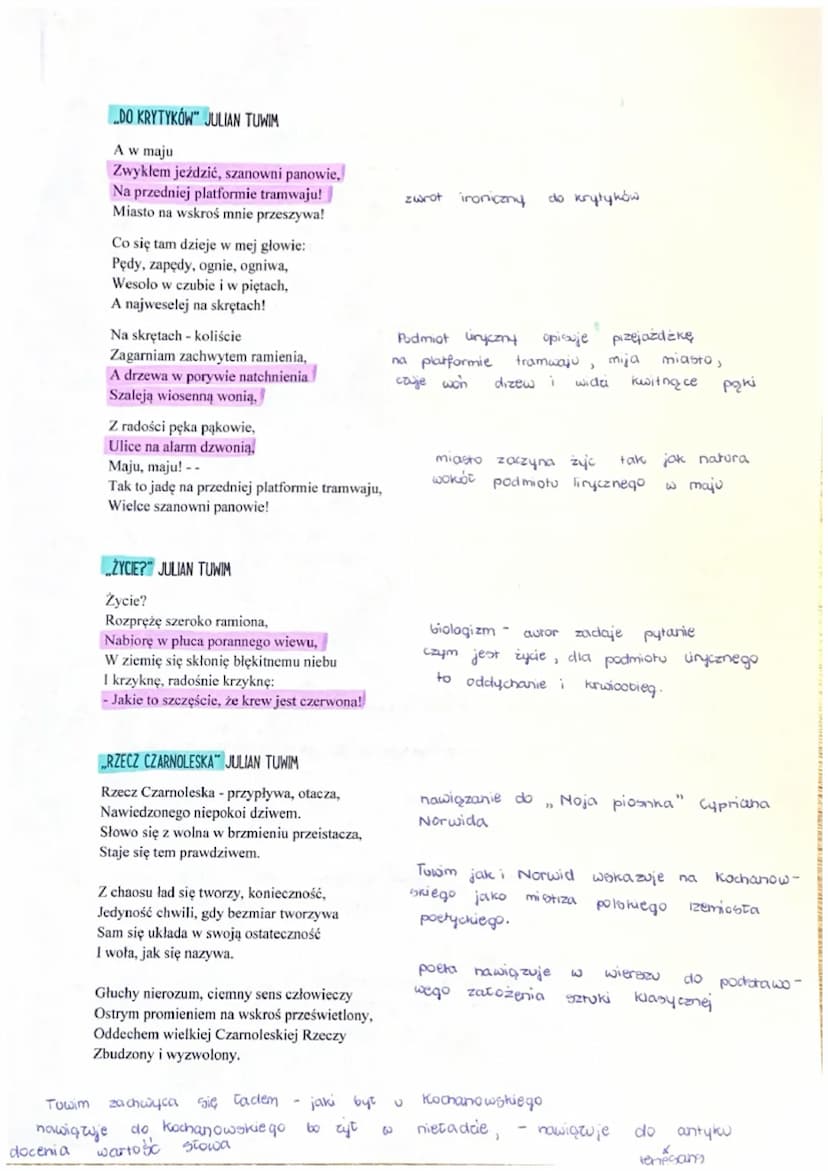 „DO KRYTYKÓW" JULIAN TUWIM
A w maju
Zwykłem jeździć, szanowni panowie,
Na przedniej platformie tramwaju!
Miasto na wskroś mnie przeszywa!
zwrot ironiczny do krytyków
Co się tam dzieje w mej głowie:
Pędy, zapędy, ognie, ogniwa,
Wesoło w czubie i w piętach,
A najweselej na skrętach!
Na skrętach - koliście
Zagarniam zachwytem ramienia,
A drzewa w porywie natchnienia
Szaleją wiosenną wonią,
Podmiot liryczny opisuje przejażdżkę
na platformie tramwaju, mija miasto,
czuje woń drzew i widzi kwitnące pąki
Z radości pęka pąkowie,
Ulice na alarm dzwonią,
Maju, maju! - -
Tak to jadę na przedniej platformie tramwaju,
Wielce szanowni panowie!
miasto zaczyna żyć tak jak natura
wokół podmiotu lirycznego w maju
„ŻYCIE?" JULIAN TUWIM
Życie?
Rozprężę szeroko ramiona,
Nabiorę w płuca porannego wiewu,
W ziemię się skłonię błękitnemu niebu
I krzyknę, radośnie krzyknę:
- Jakie to szczęście, że krew jest czerwona!
biologizm - autor zadaje pytanie
czym jest życie, dla podmiotu lirycznego
to oddychanie i krwioobieg.
„RZECZ CZARNOLESKA" JULIAN TUWIM
Rzecz Czarnoleska - przypływa, otacza,
Nawiedzonego niepokoi dziwem.
Słowo się z wolna w brzmieniu przeistacza,
Staje się tem prawdziwem.
nawiązanie do „Moja piosnka" Cypriana
Norwida
Z chaosu ład się tworzy, konieczność,
Jedyność chwili, gdy bezmiar tworzywa
Sam się układa w swoją ostateczność
I woła, jak się nazywa.
Tuwim jak i Norwid wskazuje na Kochanow-
skiego jako mistrza polskiego rzemiosła
poetyckiego.
Głuchy nierozum, ciemny sens człowieczy
Ostrym promieniem na wskroś prześwietlony,
Oddechem wielkiej Czarnoleskiej Rzeczy
Zbudzony i wyzwolony.
poeta nawiązuje w wierszu do podstawo-
wego założenia sztuki klasycznej
Tuwim zachwyca się ładem - jaki był u Kochanowskiego
nawiązuje do Kochanowskiego bo żył w nieładzie, - nawiązuje do antyku
docenia wartość słowa
x
renesans